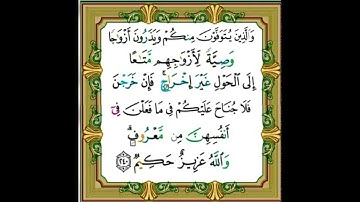 وَالَّذِينَ يُتَوَفَّوْنَ مِنكُمْ وَيَذَرُونَ أَزْوَاجًا
وَصِيَّةً لِّأَزْوَاجِهِم مَّتَاعًا
إِلَى الْحَوْلِ غَيْرَ إِخْرَاجٍ ۚ فَإِنْ خَرَجْنَ
فَلَا جُنَاحَ عَلَيْكُمْ فِي مَا فَعَلْنَ فِي
أَنفُسِهِنَّ مِن مَّعْرُوفٍ ۗ
وَاللَّهُ عَزِيزٌ حَكِيمٌ ﴿٢٤٠﴾